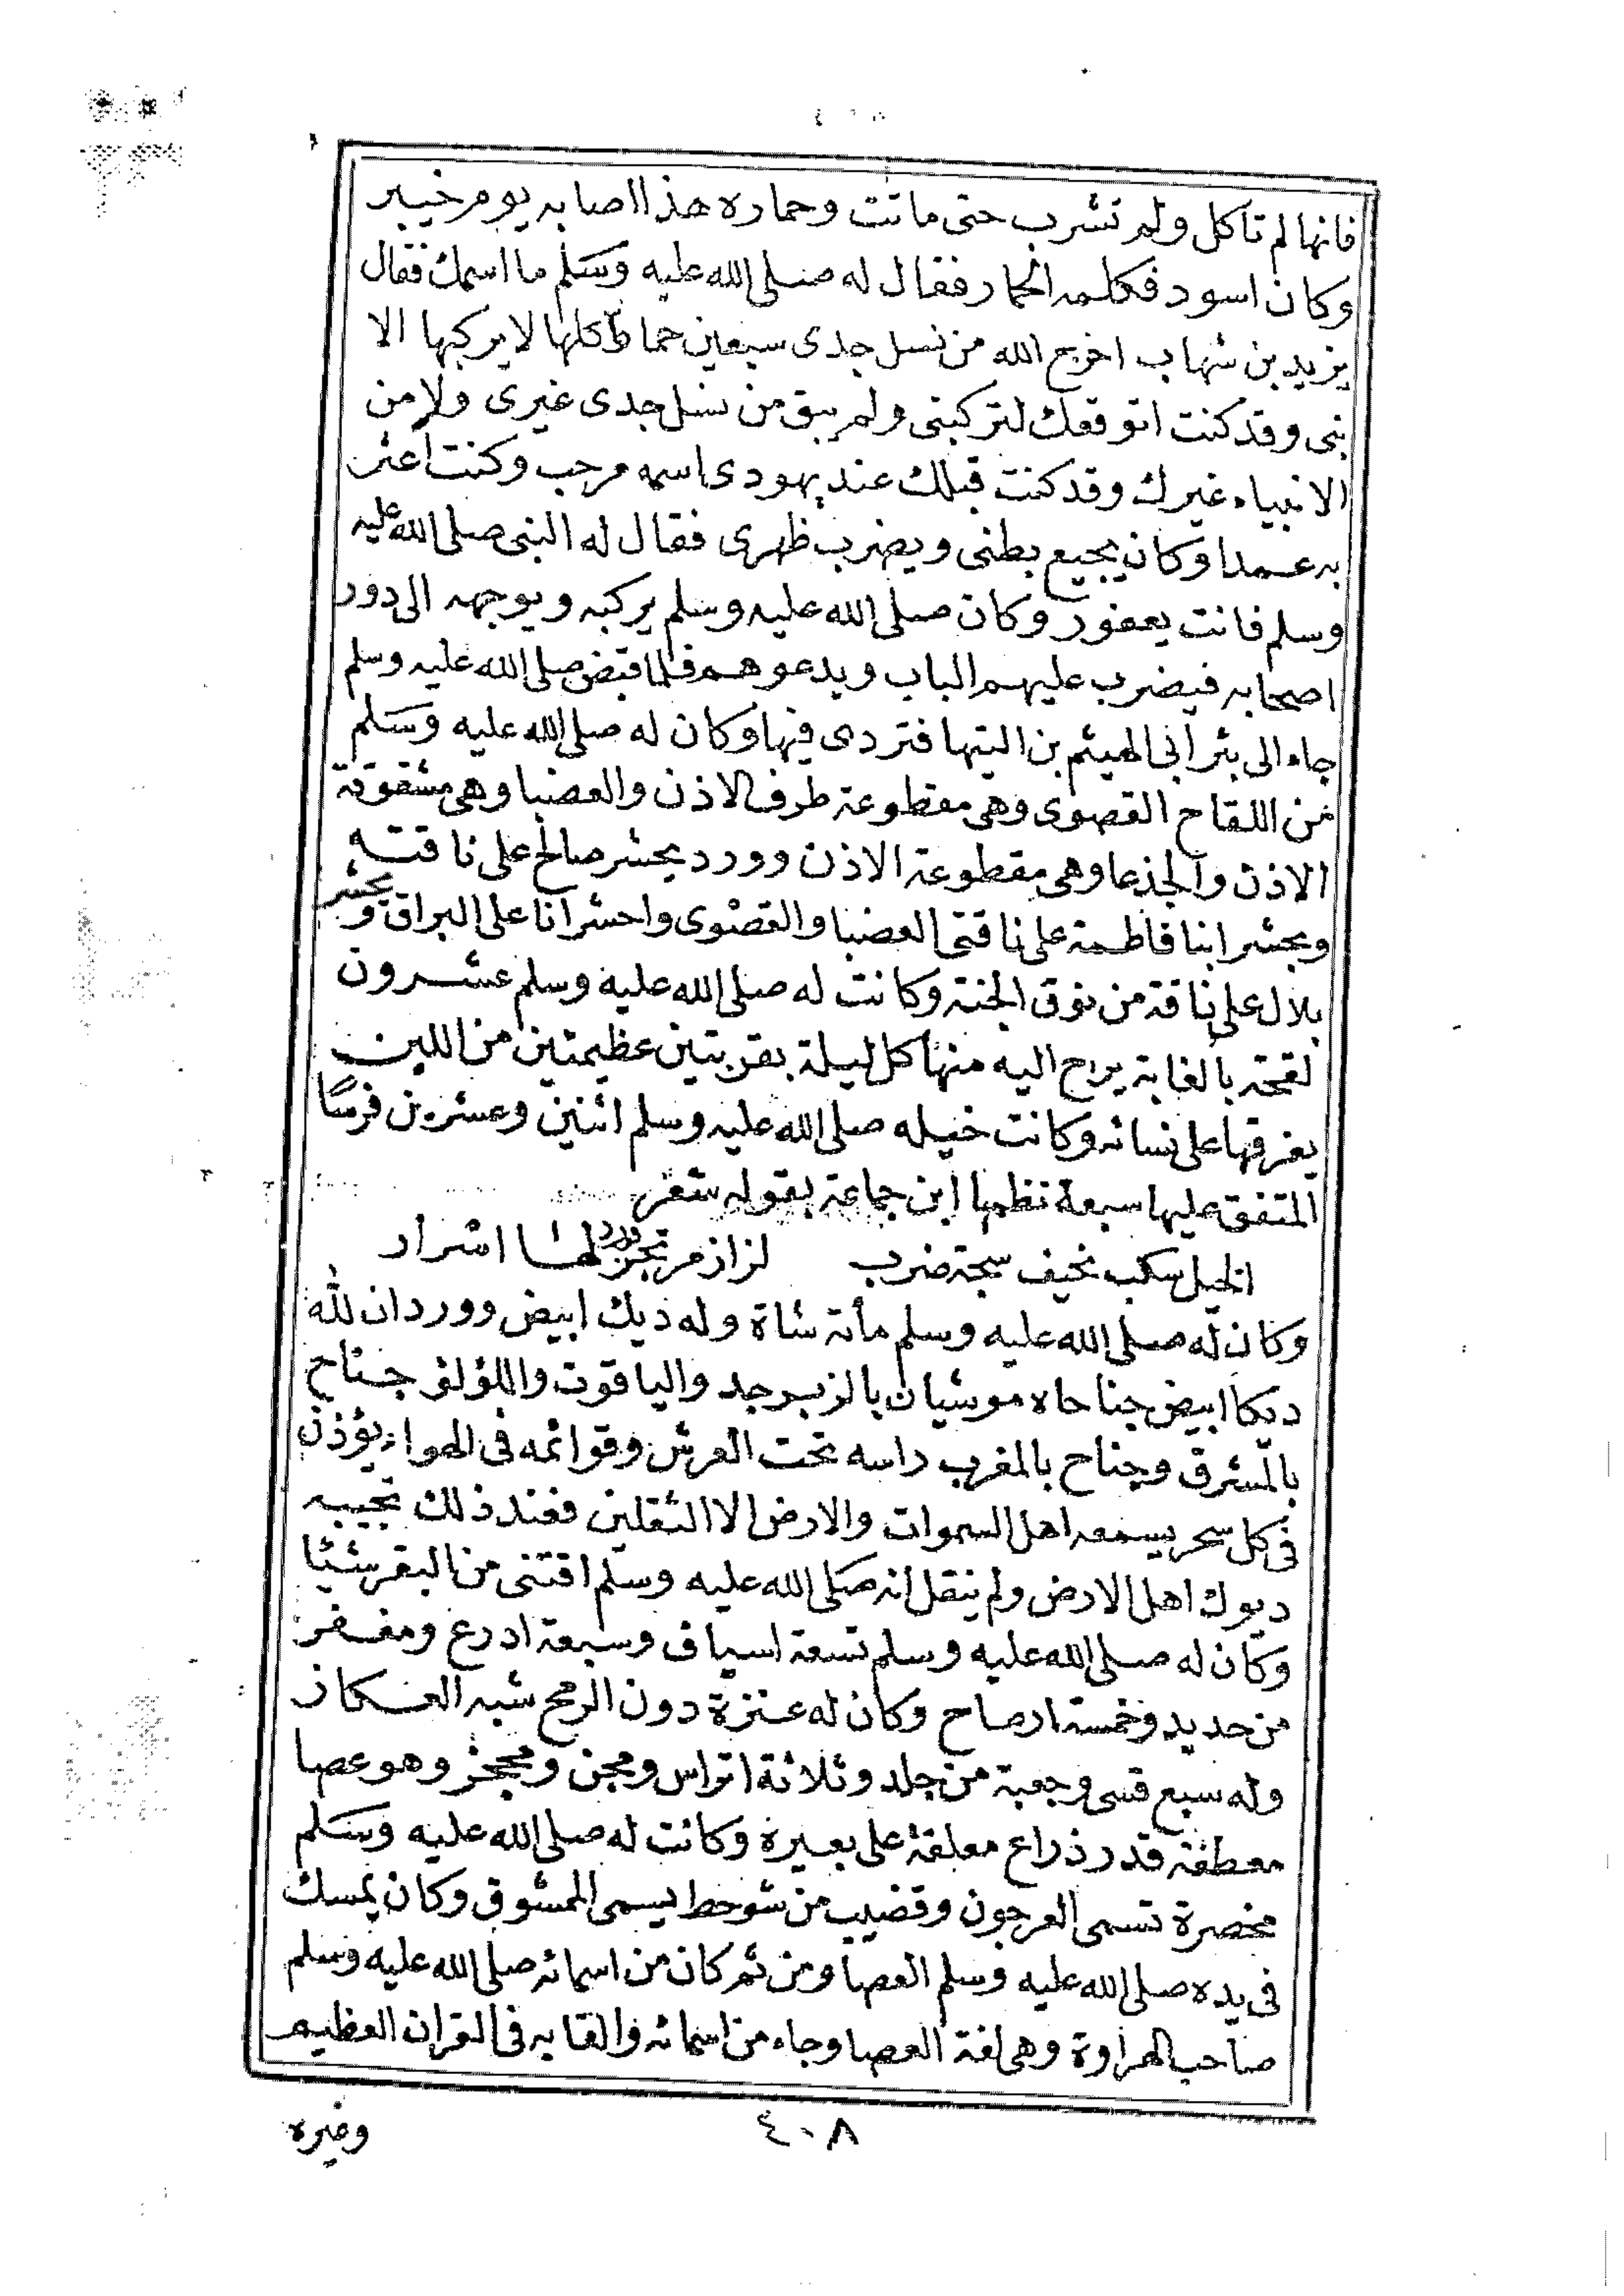 فانها لم تاكل ولم تشرب حتى ماتت وحماره هذا اصابه يوم خيبر
وكان اسود فكلمه الحمار فقال له صلى الله عليه وسلم ما اسمك فقال
يزيد بن شهاب اخرج الله من نسل جدى سبعين حمارا كلها لا يركبها الا
نبى وقد كنت اتوقعك لتركبنى ولم يبق من نسل جدى غيرى ولا من
الانبياء غيرك وقد كنت قبلك عند يهودى اسمه مرحب وكنت أعثر
به عمدا وكان يجيع بطنى ويضرب ظهرى فقال له النبى صلى الله عليه
وسلم فانت يعفور وكان صلى الله عليه وسلم يركبه ويوجهه الى دور
اصحابه فيضرب عليهم الباب ويدعوهم فلما قبض صلى الله عليه وسلم
جاء الى بئر أبى الهيثم بن التيها فتردى فيها وكان له صلى الله عليه وسلم
من اللقاح القصوى وهى مقطوعة طرف الاذن والعضبا وهى مشقوقة
الاذن والجذعا وهى مقطوعة الاذن وورد يحشر صالح على ناقته
ويحشر ابنا فاطمة على ناقتى العضبا والقصوى واحشر أنا على البراق ويحشر
بلال على ناقة من نوق الجنة وكانت له صلى الله عليه وسلم عشرون
لقحة بالغابة يراح اليه منها كل ليلة بقربتين عظيمتين من اللبن
يفرقها على نسائه وكانت خيله صلى الله عليه وسلم اثنين وعشرين فرسًا
المتفق عليها سبعة نظمها ابن جماعة بقوله شعر
الخيل سكب نحيف سبحة ضرب لزاز مرتجز ورد لها اشرار
وكان له صلى الله عليه وسلم مأئة شاة وله ديك ابيض وورد ان لله
ديكا ابيض جناحاه موشيان بالزبرجد والياقوت واللؤلؤ جناح
بالمشرق وجناح بالمغرب راسه تحت العرش وقوائمه فى الهواء يؤذن
فى كل سحر يسمعه اهل السموات والارض الا الثقلين فعند ذلك تجيبه
ديوك اهل الارض ولم ينقل انه صلى الله عليه وسلم اقتنى من البقر شيئا
وكان له صلى الله عليه وسلم تسعة اسياف وسبعة ادرع ومغفر
من حديد وخمسة ارماح وكان له عنزة دون الرمح شبه العكاز
وله سبع قسى وجعبة من جلد وثلاثة اتراس ومجن ومحجن وهو عصا
معطفة قدر ذراع معلقة على بعيره وكانت له صلى الله عليه وسلم
مخصرة تسمى العرجون وقضيب من شوحط يسمى الممشوق وكان يمسك
فى يده صلى الله عليه وسلم العصا ومن ثم كان من اسمائه صلى الله عليه وسلم
صاحب الهراوة وهى لغة العصا وجاء من اسمائه والقابه فى القران العظيم
٤٠٨
وغيره